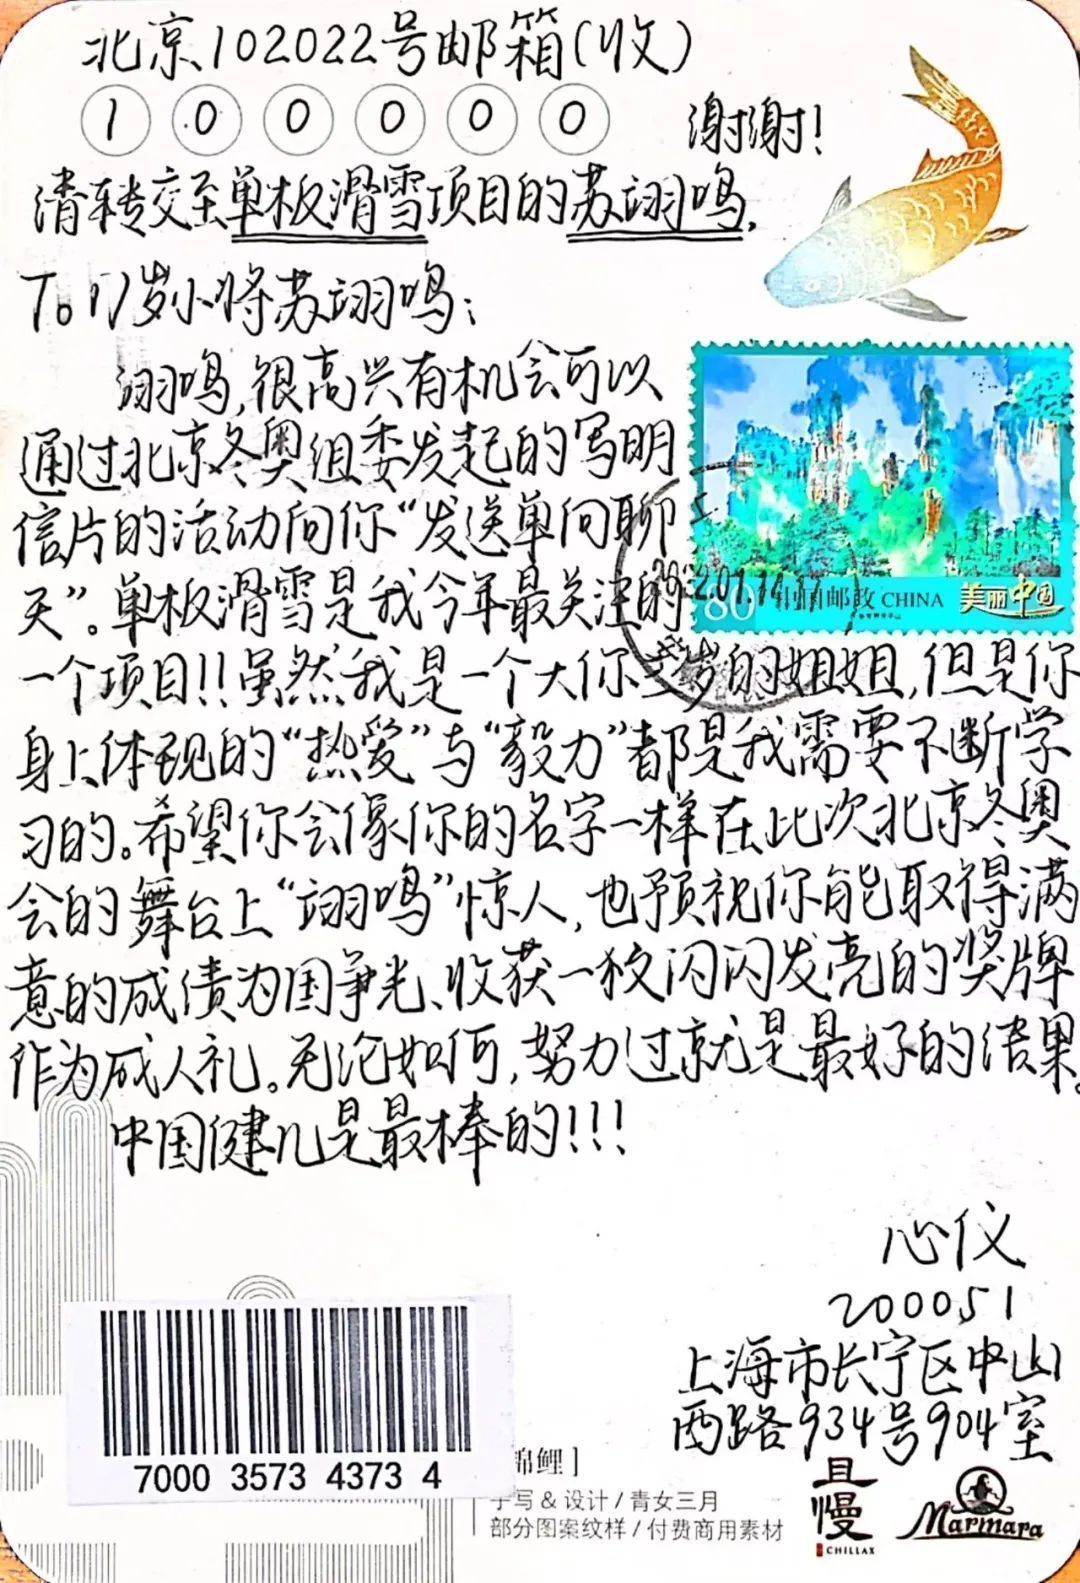 北京102022号邮箱(收)
1 0 0 0 0 0 谢谢!
请转交至单板滑雪项目的苏翊鸣,
To 17岁小将苏翊鸣:
翊鸣,很高兴有机会可以
通过北京冬奥组委发起的写明
信片的活动向你“发送单向聊
天”。单板滑雪是我今年最关注的
一个项目!!虽然我是一个大你 岁的姐姐,但是你
身上体现的“热爱”与“毅力”都是我需要不断学
习的。希望你会像你的名字一样在此次北京冬奥
会的舞台上“翊鸣”惊人,也预祝你能取得满
意的成绩为国争光、收获一枚闪闪发亮的奖牌
作为成人礼。无论如何,努力过就是最好的结果。
中国健儿是最棒的!!!
80 中国邮政 CHINA 美丽中国
2022.01.14
心仪
200051
上海市长宁区中山
西路934号904室
7000 3573 4373 4
锦鲤]
手写&设计/青女三月
部分图案纹样/付费商用素材
且慢
CHILLAX
Marmara